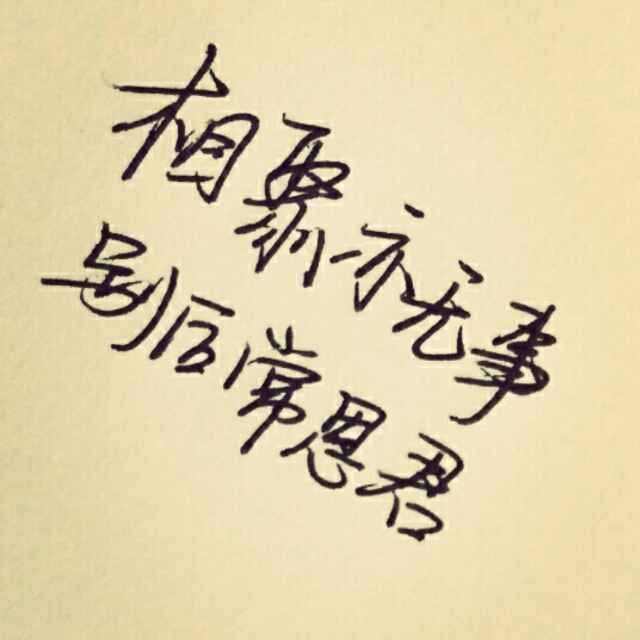 相聚亦无事
别后常思君